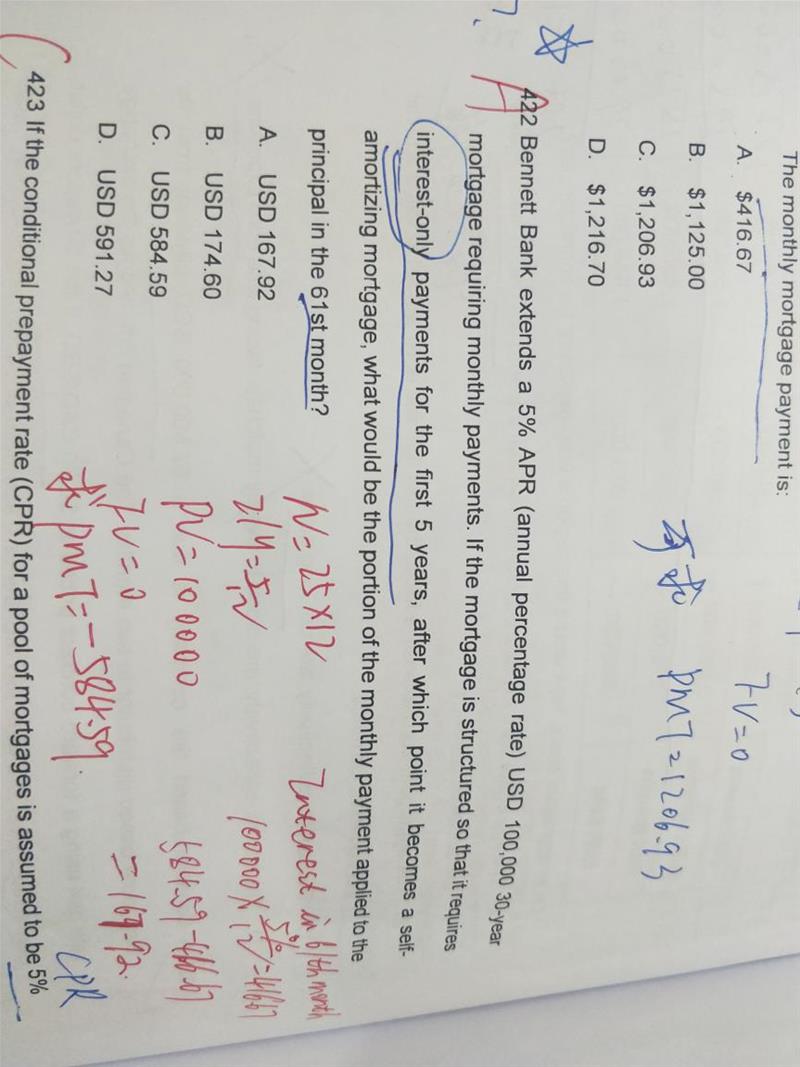 The monthly mortgage payment is:
A. $416.67
B. $1,125.00
C. $1,206.93
D. $1,216.70
FV=0
求 PMT=1206.93
422 Bennett Bank extends a 5% APR (annual percentage rate) USD 100,000 30-year
mortgage requiring monthly payments. If the mortgage is structured so that it requires
interest-only payments for the first 5 years, after which point it becomes a self-
amortizing mortgage, what would be the portion of the monthly payment applied to the
principal in the 61st month?
A. USD 167.92
B. USD 174.60
C. USD 584.59
D. USD 591.27
A
N=25×12
I/Y=5/12
PV=100000
FV=0
求 PMT=-584.59
Interest in 61th month
100000×5%/12=416.67
=167.92
423 If the conditional prepayment rate (CPR) for a pool of mortgages is assumed to be 5%
CPR